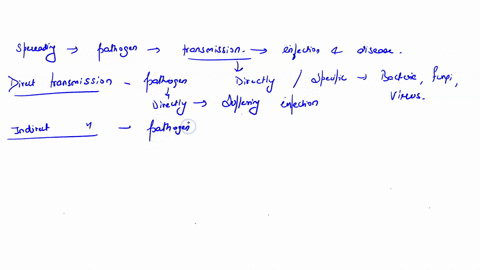 Spreading → pathogen → transmission. → infection & disease.
Direct transmission - pathogen ↓ Directly / Specific → Bacteria, fungi, Virus.
↓ Directly → Suffering infection
Indirect " - pathogen